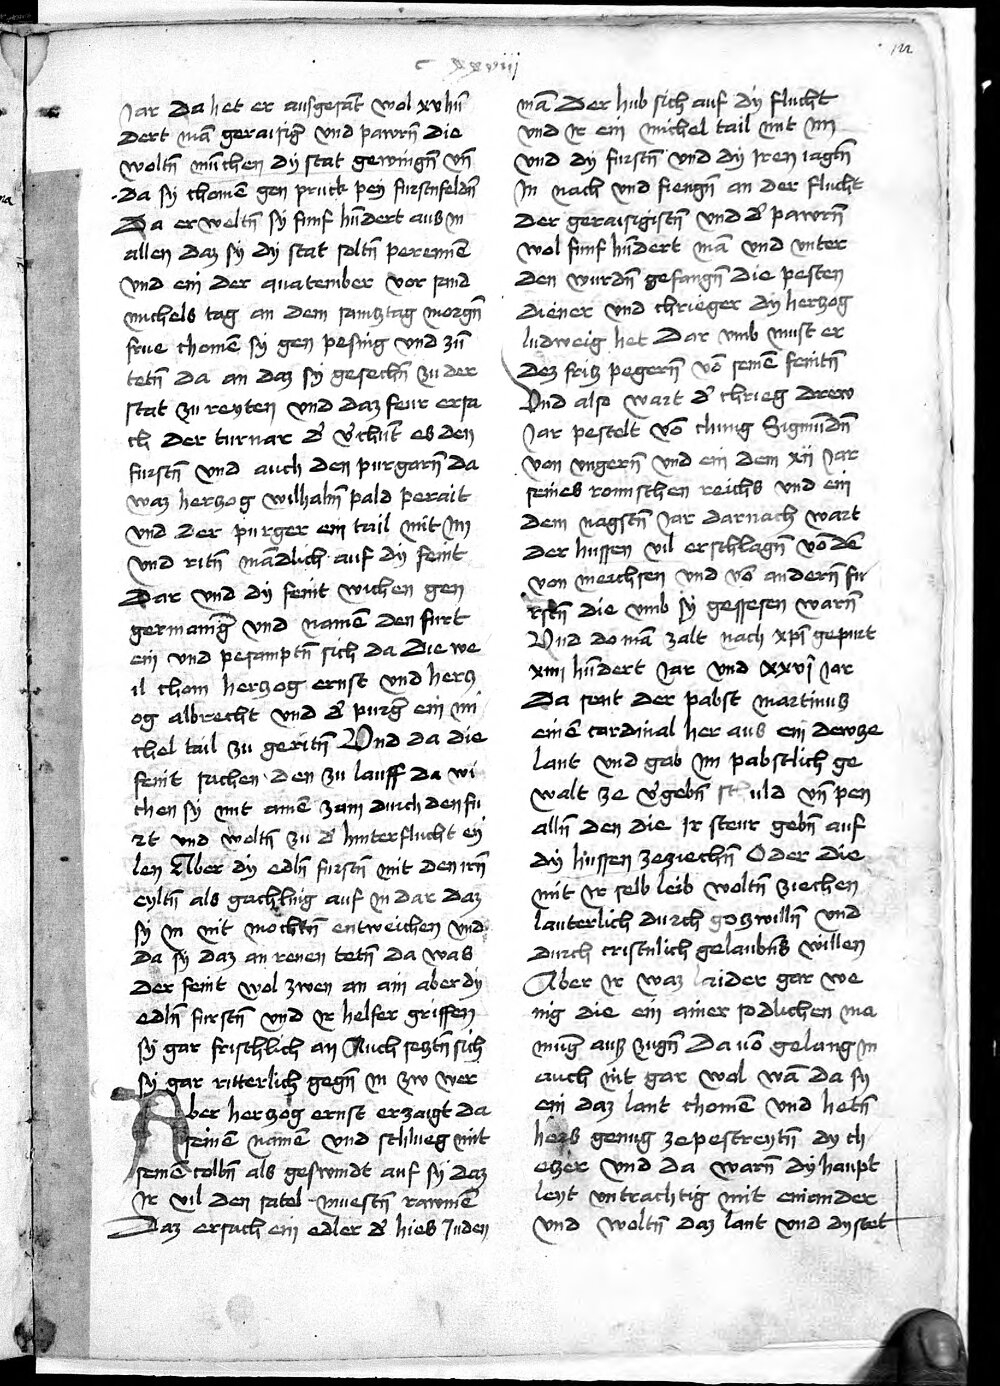 c xxviij
Jar Da het er ausgesāt wol xv hū
dert mā geraisig᷑ vnd pawrn̄ die
woltn̄ mūchen dy stat gewingn̄ vn̄
Da sy chomē gen pruck pey furstnfeldn̄
Da er weltn̄ sy funf hūdert aus in
allen daz sy dy stat soltn̄ perennē
vnd ein der quatember vor sand
michels tag an dem samztag morgn̄
frue chomē sy gen pesing vnd zū
tetn̄ da an daz sy gesechn̄ zu der
stat zu reyten vnd daz feur ersa
ch der turnar d᷑ v᷑chūt es den
furstn̄ vnd auch den purgarn̄ da
waz herzog wilhalm̄ pald perait
vnd der purger ein tail mit Im
vnd ritn̄ mādlich auf dy feint
Dar vnd dy feint wichen gen
germanig᷑ vnd namē den furt
ein vnd pesamptn̄ sich da Die we
il chom herzog ernst vnd herz
og albrecht vnd d᷑ purg᷑ ein mi
chel tail zu geritn̄ Vnd da die
feint sachen den zu lauff da wi
chen sy mit ainē zain durch den fu
rt vnd woltn̄ zu d᷑ hinterflucht ey
len Aber dy edln̄ furstn̄ mit den irn̄
eyltn̄ als gachling auf in dar daz
sy in nit mochtn̄ entweichen vnd
da sy daz an renen tetn̄ da was
der feint wol zwen an ain aber dy
edln̄ furstn̄ vnd ir helfer griffen
sy gar frischlich an Auch seztn̄ sich
sy gar ritterlich gegn̄ in zw wer
Aber herzog ernst erzaigt da
seinē namē vnd schlueg mit
seinē colbn̄ als geswindt auf sy daz
Ir vil den satel muestn̄ rawmē
Daz ersach ein edler d᷑ hies Juden
mā Der hub sich auf dy flucht
vnd ir ein michel tail mit im
vnd dy furstn̄ vnd dy Iren iagtn̄
In nach vnd fiengn̄ an der flucht
der geraisigistn̄ vnd d᷑ pawrn̄
wol funf hūdert mā vnd vnter
den wurdn̄ gefangn̄ die pesten
diener vnd chrieger dy herzog
ludweig het Dar vmb must er
dez friz pegern̄ vō seinē feintn̄
Vnd also wart d᷑ chrieg drew
Jar pestelt vō chunig Sigmūdn̄
von vngern̄ vnd ein dem xij Jar
seines romischen reichs vnd ein
dem nagstn̄ Jar darnach wart
der hussen vil erschlagn̄ vō dē
von meichsen vnd vō andern̄ fu
rstn̄ die vmb sy gesessen warn̄
Vnd do mā zalt nach xp̄i gepurt
xiiij hūdert Jar vnd xxvj Jar
Da sent der pabst martinus
einē cardinal her aus ein dewze
lant vnd gab im pabstlich ge
walt ze v᷑gebn̄ schuld vn̄ pen
alln̄ den die Ir steur gebn̄ auf
dy hussen zeziechn̄ Oder die
mit ir selb leib woltn̄ ziechen
lauterlich durch goz willn̄ vnd
durch cristnlich gelaubn̄s willen
Aber ir waz laider gar we
nig die ein ainer sodlichen ma
inūg auz zugn̄ Da vō gelang in
auch nit gar wol wā da sy
ein daz lant chomē vnd hetn̄
herz genug ze pestreytn̄ dy ch
ezer vnd da warn̄ dy haupt
leyt vntrachtig mit einander
vnd woltn̄ daz lant vnd dy stet